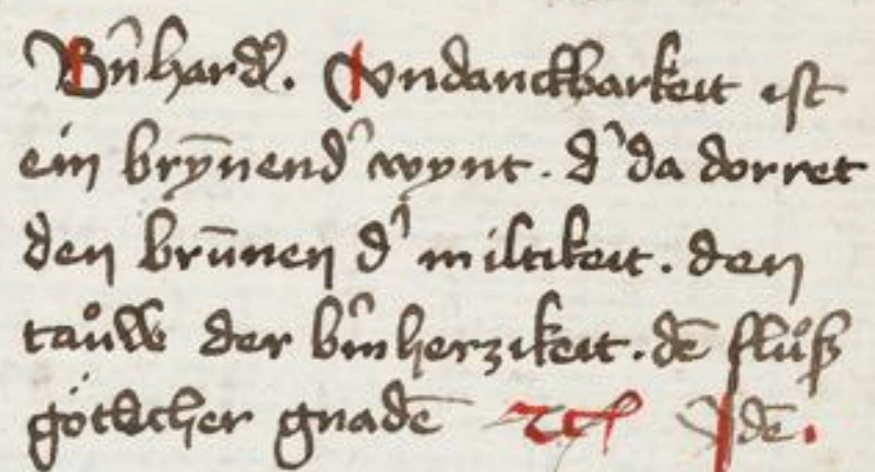 Bn̄hardꝰ. Vndanckbarkeit ist
ein brȳnend' wynt. d' da dorret
den brūnen d' miltikeit. den
tauͦw der bm̄herzikeit. dē fluͦß
götlicher gnadē ⁊cꝭ Idē.